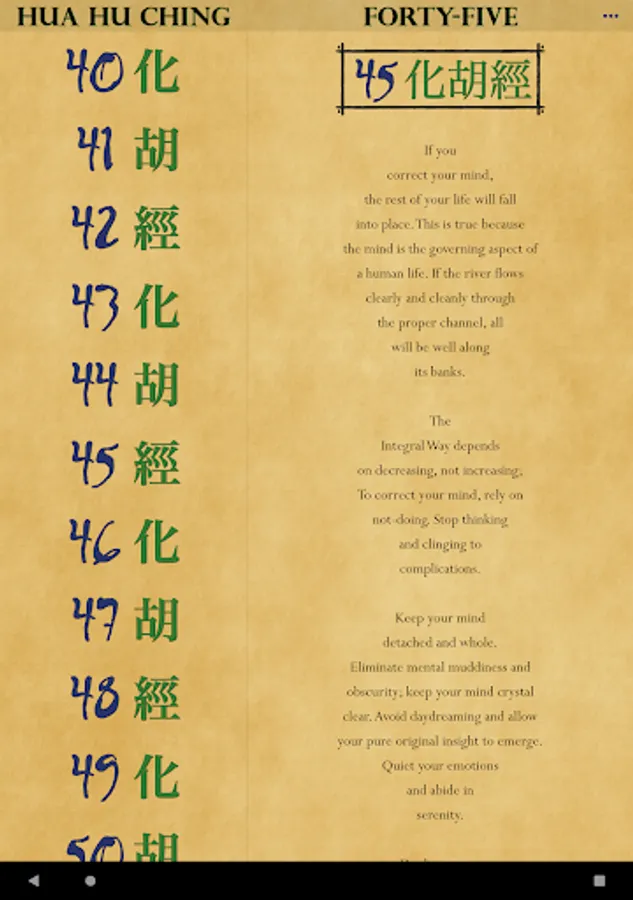 HUA HU CHING
40 化
41 胡
42 經
43 化
44 胡
45 經
46 化
47 胡
48 經
49 化
50 胡
FORTY-FIVE
45 化胡經
If you
correct your mind,
the rest of your life will fall
into place. This is true because
the mind is the governing aspect of
a human life. If the river flows
clearly and cleanly through
the proper channel, all
will be well along
its banks.
The
Integral Way depends
on decreasing, not increasing;
To correct your mind, rely on
not-doing. Stop thinking
and clinging to
complications.
Keep your mind
detached and whole.
Eliminate mental muddiness and
obscurity; keep your mind crystal
clear. Avoid daydreaming and allow
your pure original insight to emerge.
Quiet your emotions
and abide in
serenity.